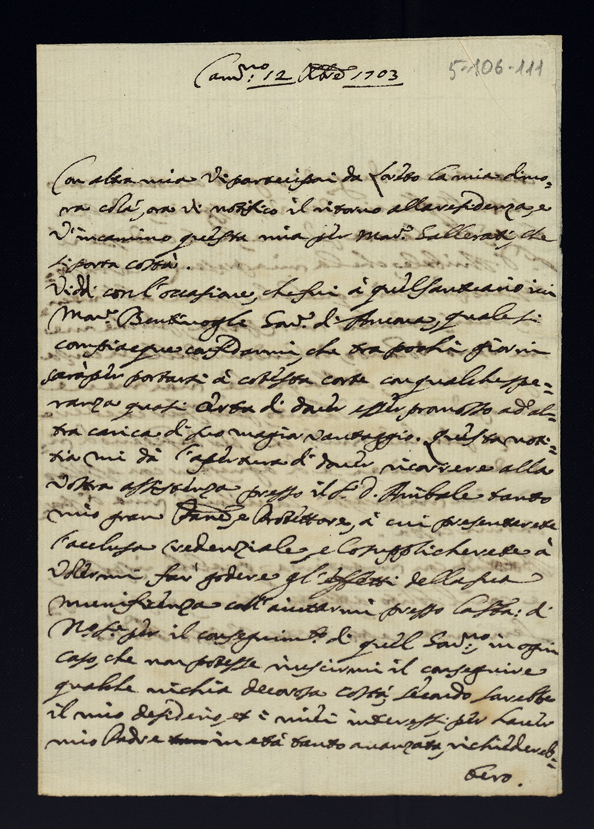 Cam.no 12 Xbre 1703
5-106-111
Con altra mia vi partecipai da Loreto la mia dimo-
ra colà, ora vi notifico il ritorno alla residenza, e
v'incamino questa mia per Mar. Gallerati, che
si porta costà.
Vidi con l'occasione, che fui à quel santuario ivi
Mons.r Bentivoglo Gov.e di Ancona, quale si
compiacque confidarmi, che tra pochi giorni
sarà per portarsi à cotesta corte con qualche spe-
ranza quasi certa di dover esser promosso ad al-
tra carica di suo magior vantaggio. Questa noti-
tia mi dà l'apertura di dover ricorrere alla
vostra assistenza presso il S. D. Anibale tanto
mio gran Pane, e Protettore, à cui presenterete
l'acclusa credenziale, e lo supplicherete à
volermi far godere gl'effetti della sua
munifizenza coll'aiutarmi presso la S.tà di
No.S.re per il conseguim.to di quel Gov.no, in ogni
caso, che non potesse riuscirmi il conseguire
qualche nichia decorosa costà, secondo sarebbe
il mio desiderio, et i miei interessi per haver
mio Padre in età tanto avanzata, richiedereb-
bero.